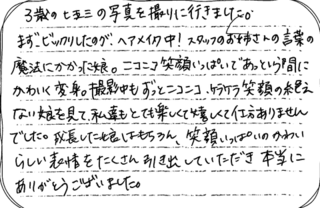 3歳の七五三の写真を撮りに行きました。
まず、ビックリしたのが、ヘアメイク中！スタッフのお姉さんの言葉の
魔法にかかった娘。ニコニコ笑顔いっぱいであっという間に
かわいく変身。撮影中もずっとニコニコ、ケラケラ笑顔の絶え
ない娘を見て、私達もとても楽しくて嬉しくて仕方ありません
でした。成長した娘はもちろん、笑顔いっぱいのかわい
らしい表情をたくさん引き出していただき本当に
ありがとうございました。